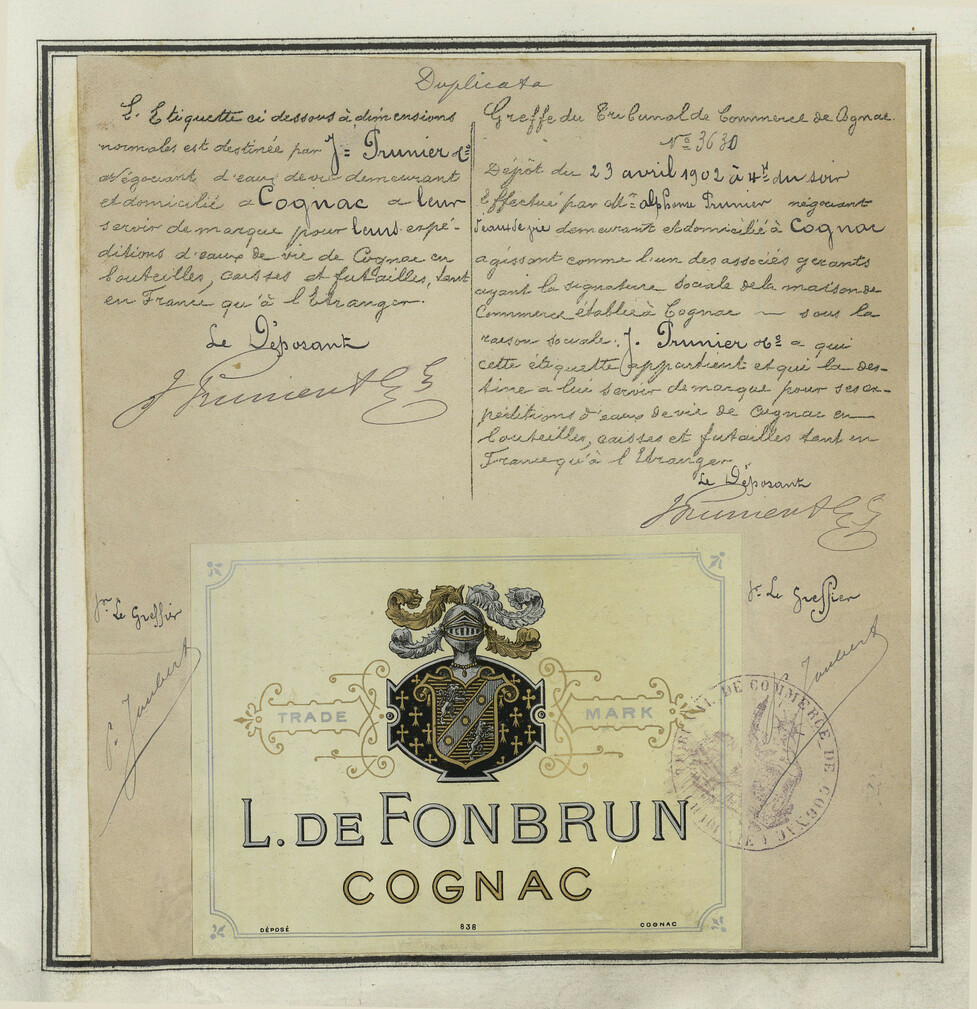 Duplicata
L'Etiquette ci dessous à dimensions
normales est destinée par J= Prunier & Cie
Négociant d'eaux de vie demeurant
et domicilié à Cognac a leur
servir de marque pour leurs expé-
ditions d'eaux de vie de Cognac en
bouteilles, caisses et futailles, tant
en France qu'à l'Etranger.
Le Déposant
J Prunier & Cie
Greffe du Tribunal de Commerce de Cognac.
No 3630
Dépôt du 23 avril 1902 à 4h du soir
Effectué par Mr alphonse Prunier négociant
d'eaux de vie demeurant et domicilié à Cognac
agissant comme l'un des associés gérants
ayant la signature sociale de la maison de
Commerce établie à Cognac — sous la
raison sociale. J. Prunier & Co a qui
cette étiquette appartient et qui la des-
tine a lui servir de marque pour ses ex-
péditions d'eaux de vie de Cognac en
bouteilles, caisses et futailles tant en
France qu'à l'Etranger
Le Déposant
J Prunier & Cie
Le Greffier
Joubert
Le Greffier
Joubert
TRADE MARK
L. DE FONBRUN
COGNAC
DÉPOSÉ 838 COGNAC
TRIBUNAL DE COMMERCE DE COGNAC